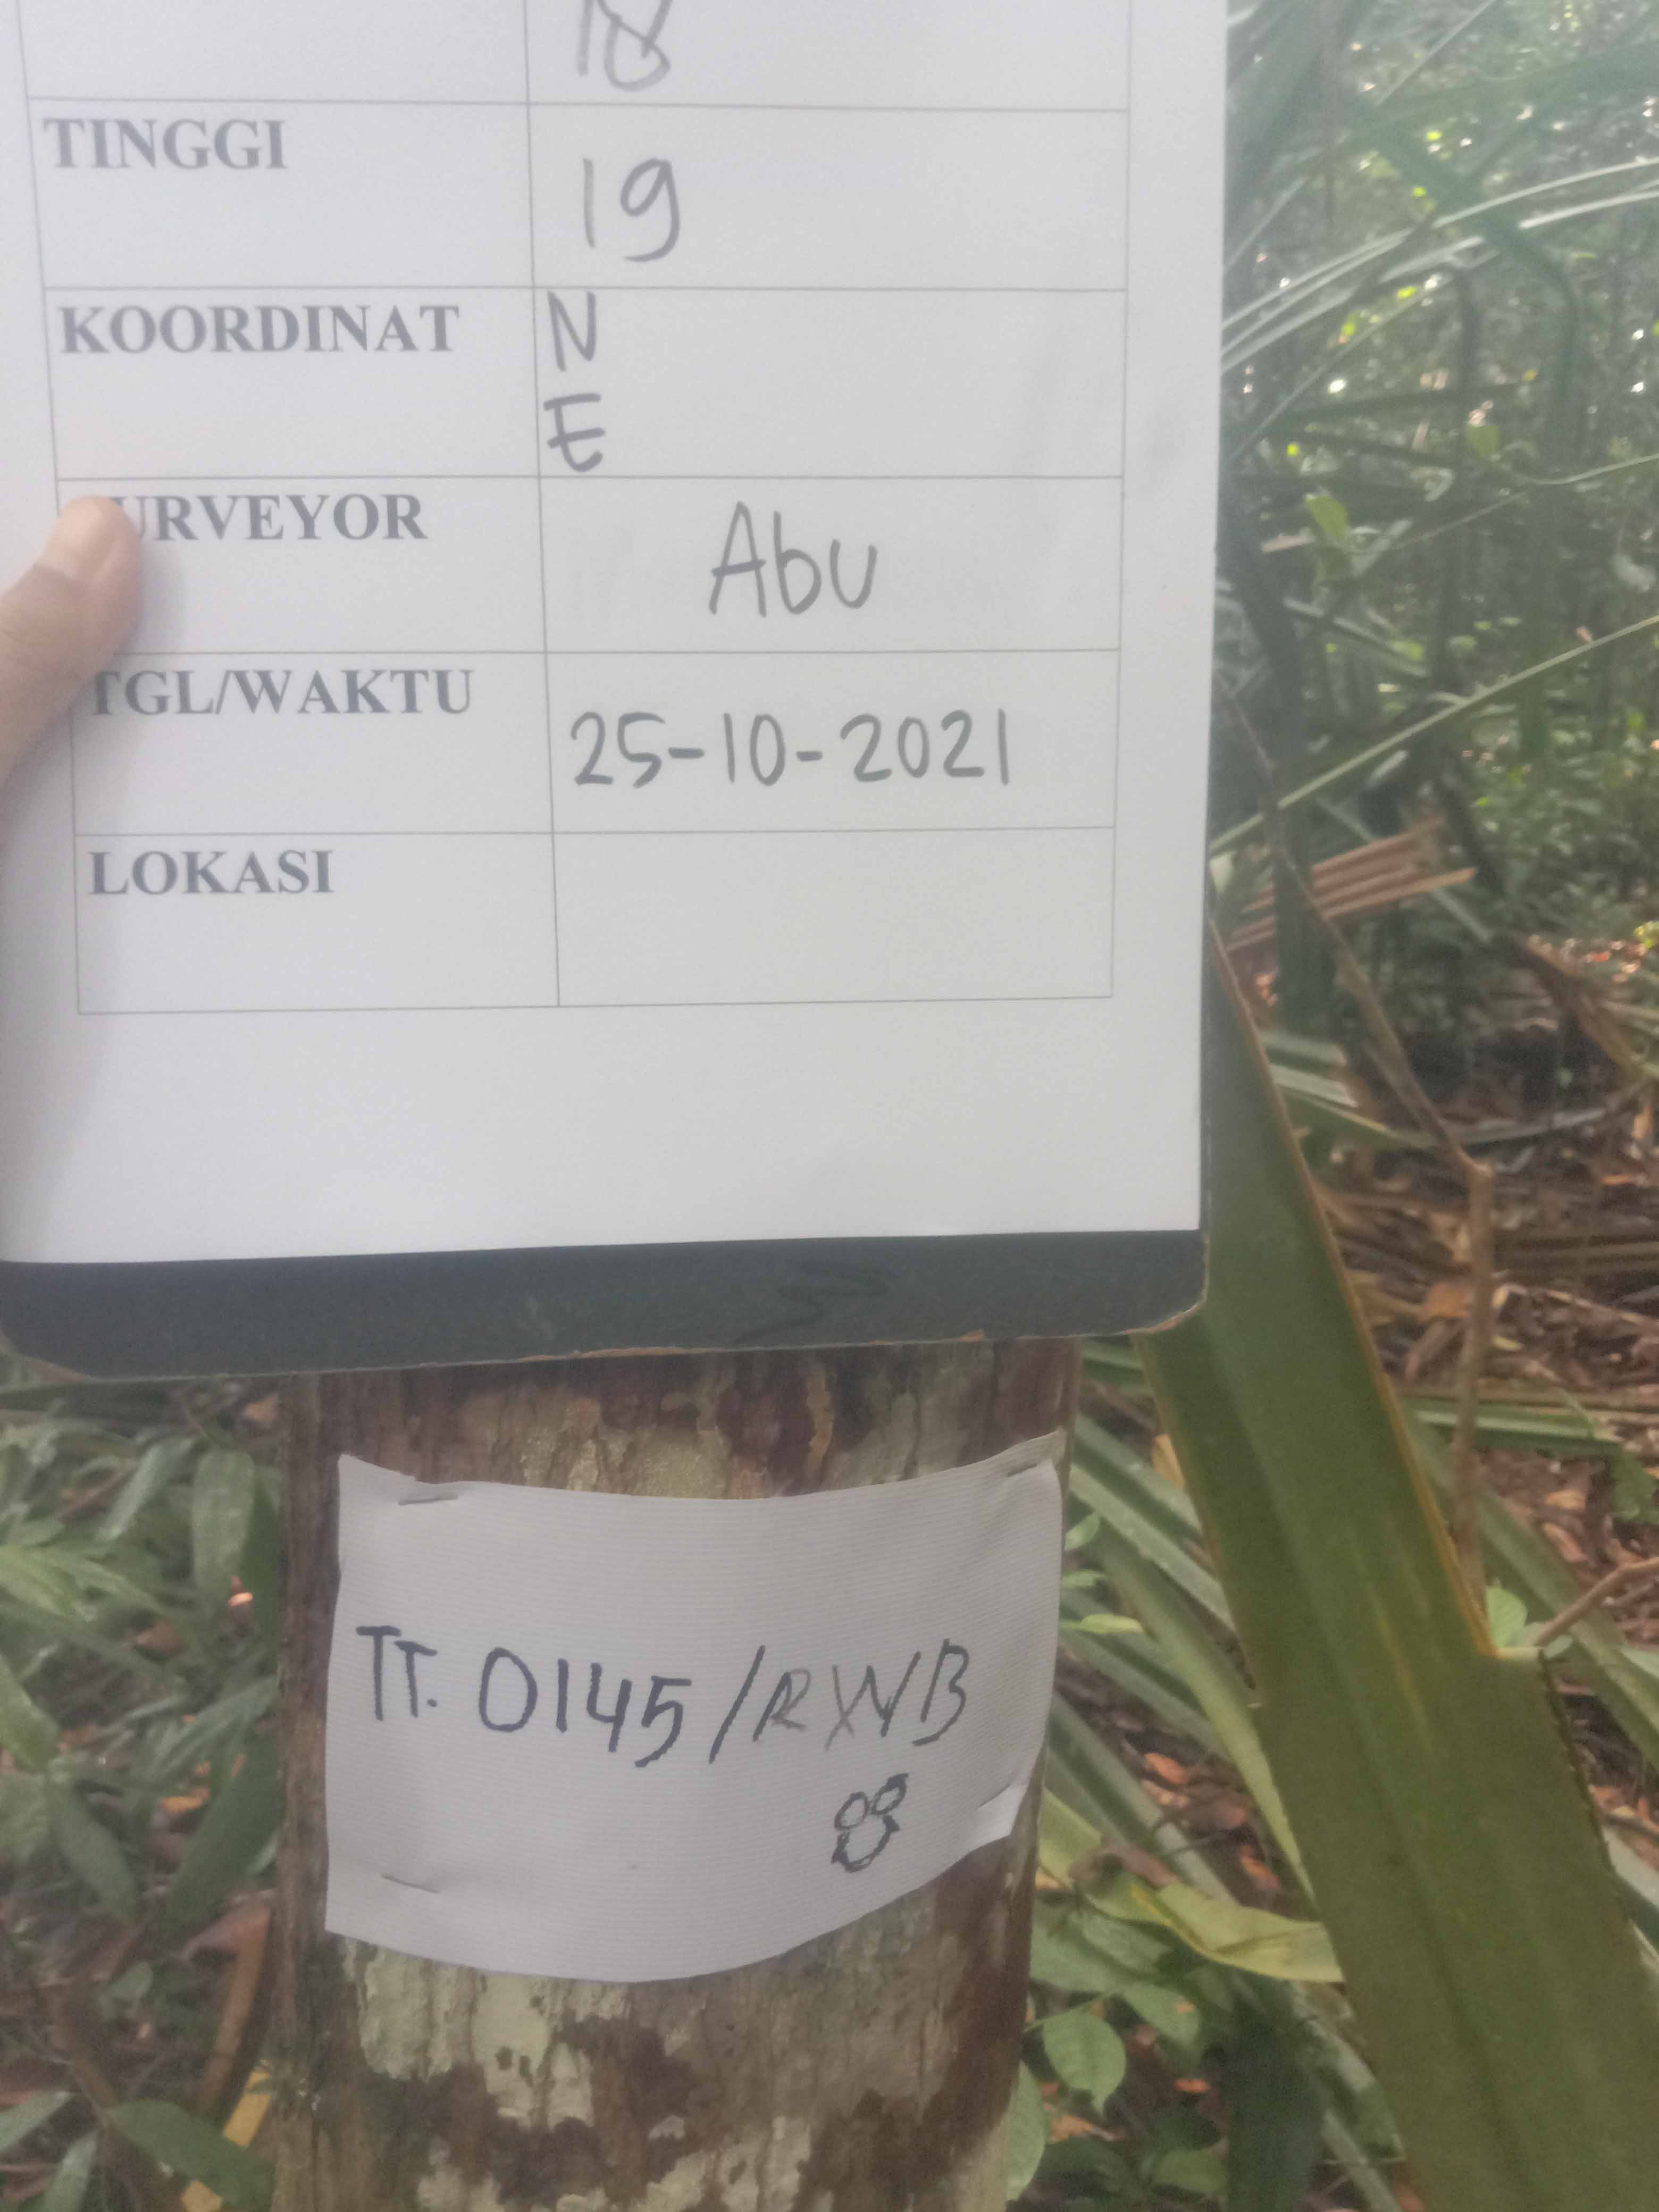 18
TINGGI 19
KOORDINAT N
E
SURVEYOR Abu
TGL/WAKTU 25-10-2021
LOKASI
TT. 0145/RWB